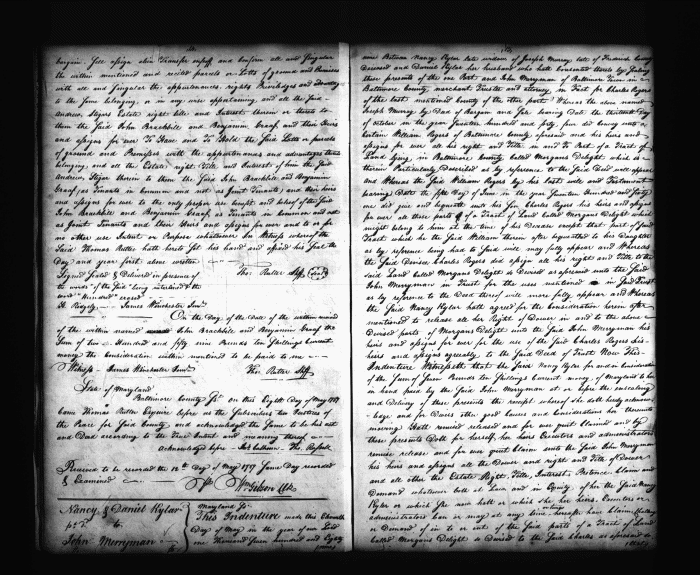 bargain Sell assign alien Transfer enfeoff and confirm all and singular
the within mentioned and recited parcels or Lotts of ground and Premises
with all and singular the appurtenances rights Priviledges and
to the same belonging, or in any wise appertaining, and all the said
Andrew Stigers Estate right title and Interest therein or thereto to
them the said John Brackbile and Benjamin Graaf, and their Heirs
and assigns for ever To Have and To Hold the said Lotts or parcels
of ground and Premises with the appurtenances and advantages thereto
belonging, and all the Estate right Title and Interest of him the said
Andrew Stiger therein to them the said John Brackbile and Benjamin
Graaf (as Tenants in common and not as Joint Tenants) and their heirs
and assigns for ever to the only proper use benefit and behoof of the said
John Brackbile and Benjamin Graaf, as Tenants in common and not
as Joint Tenants and their Heirs and assigns for ever and to and for
no other use Intent or Purpose whatsoever In Witness whereof the
said Thomas Rutter hath hereto set his hand and affixed his Seal the
Day and year first above written
Signed Sealed & Delivered in presence of Tho: Rutter Shff (Seal)
the words "of the said" being interlined & the
word "Hundred" erased
H. Ridgely - James Winchester Junr
On the Day of the Date of the within received
of the within named John Brackbile and Benjamin Graaf the
Sum of two Hundred and fifty nine Pounds ten Shillings Current
money the Consideration within mentioned to be paid to me
Witness - James Winchester Junr Tho: Rutter Shff
State of Maryland
Baltimore County Sc on this Eight Day of May 1787
Came Thomas Rutter Esquire before us the Subscribers two Justices of
the Peace for said County and acknowledged the same to be his act
and Deed according to the true Intent and meaning thereof
acknowledged before - Tho: Russell
Received to be recorded the 10th Day of May 1787 Same Day recorded
& Examined Wm Gibson Clk
Nancy & Daniel Kylar
to
John Merryman
Maryland Sc
This Indenture made this Eleventh
Day of May in the year of our Lord
one Thousand Seven hundred and Eighty
seven Between Nancy Kylar late widow of Joseph Murray late of Frederick County
Deceased and Daniel Kylar her husband who hath consented thereto by Sealing
these presents of the one Part and John Merryman of Baltimore Town in
Baltimore County, merchant Trustee and attorney, in Fact for Charles Rogers
of the last mentioned County of the other part: Whereas the above named
Joseph Murray by Deed of Bargain and Sale bearing Date the thirteenth Day
of October in the year Seventeen hundred and forty five did convey unto a
certain William Rogers of Baltimore County aforesaid and his heirs and
assigns for ever all his right and Title in and to Part of a Tract of
Land lying in Baltimore County called Morgans Delight which is
therein Particularly Described as by reference to the said Deed will appear
and Whereas the said William Rogers by his last will and Testament
bearing Date the fifth Day of June in the year Seventeen Hundred and Sixty
one did give and bequeath unto his Son Charles Rogers his heirs and assigns
for ever all those parts of a Tract of Land called Morgans Delight which
might belong to him at the time of his Decease except that part of said
Tract which he the said William therein after devised to his Daughter
as by reference being had to said will may fully appear and Whereas
the said Devisee Charles Rogers did assign all his right and Title to the
said Land called Morgans Delight so Devised as aforesaid unto the said
John Merryman in Trust for the uses mentioned in said Trust
as by reference to the Deed thereof will more fully appear and Whereas
the said Nancy Kylar hath agreed for the consideration herein after
mentioned to release all her Right of Dower in and to the above
Devised parts of Morgans Delight unto the said John Merryman his
heirs and assigns for ever for the use of the said Charles Rogers his
heirs and assigns agreeably to the said Deed of Trust Now This
Indenture Witnesseth that the said Nancy Kylar for and in Consideration
of the Sum of Seven Pounds ten Shillings Current money of Maryland to her
in hand paid by the said John Merryman at or before the ensealing
and Delivery of these presents the receipt whereof she doth hereby acknow-
ledge and for Divers other good causes and Considerations her thereunto
moving Hath remised released and for ever quit claimed and by
these presents Doth for herself, her heirs Executors and administrators
remise release and for ever quit claim unto the said John Merryman
his heirs and assigns all the Dower and right and Title of Dower
and all other the Estate Right, Title, Interest, Pretence, Claim and
Demand whatever both at Law and in Equity, of her the said Nancy
Kylar or which she now hath or which she her heirs Executors or
administrators Can or may at any time hereafter have Claim challenge
or Demand of in to or out of the said parts of a Tract of Land
called Morgans Delight so Devised to the said Charles as aforesaid so
that